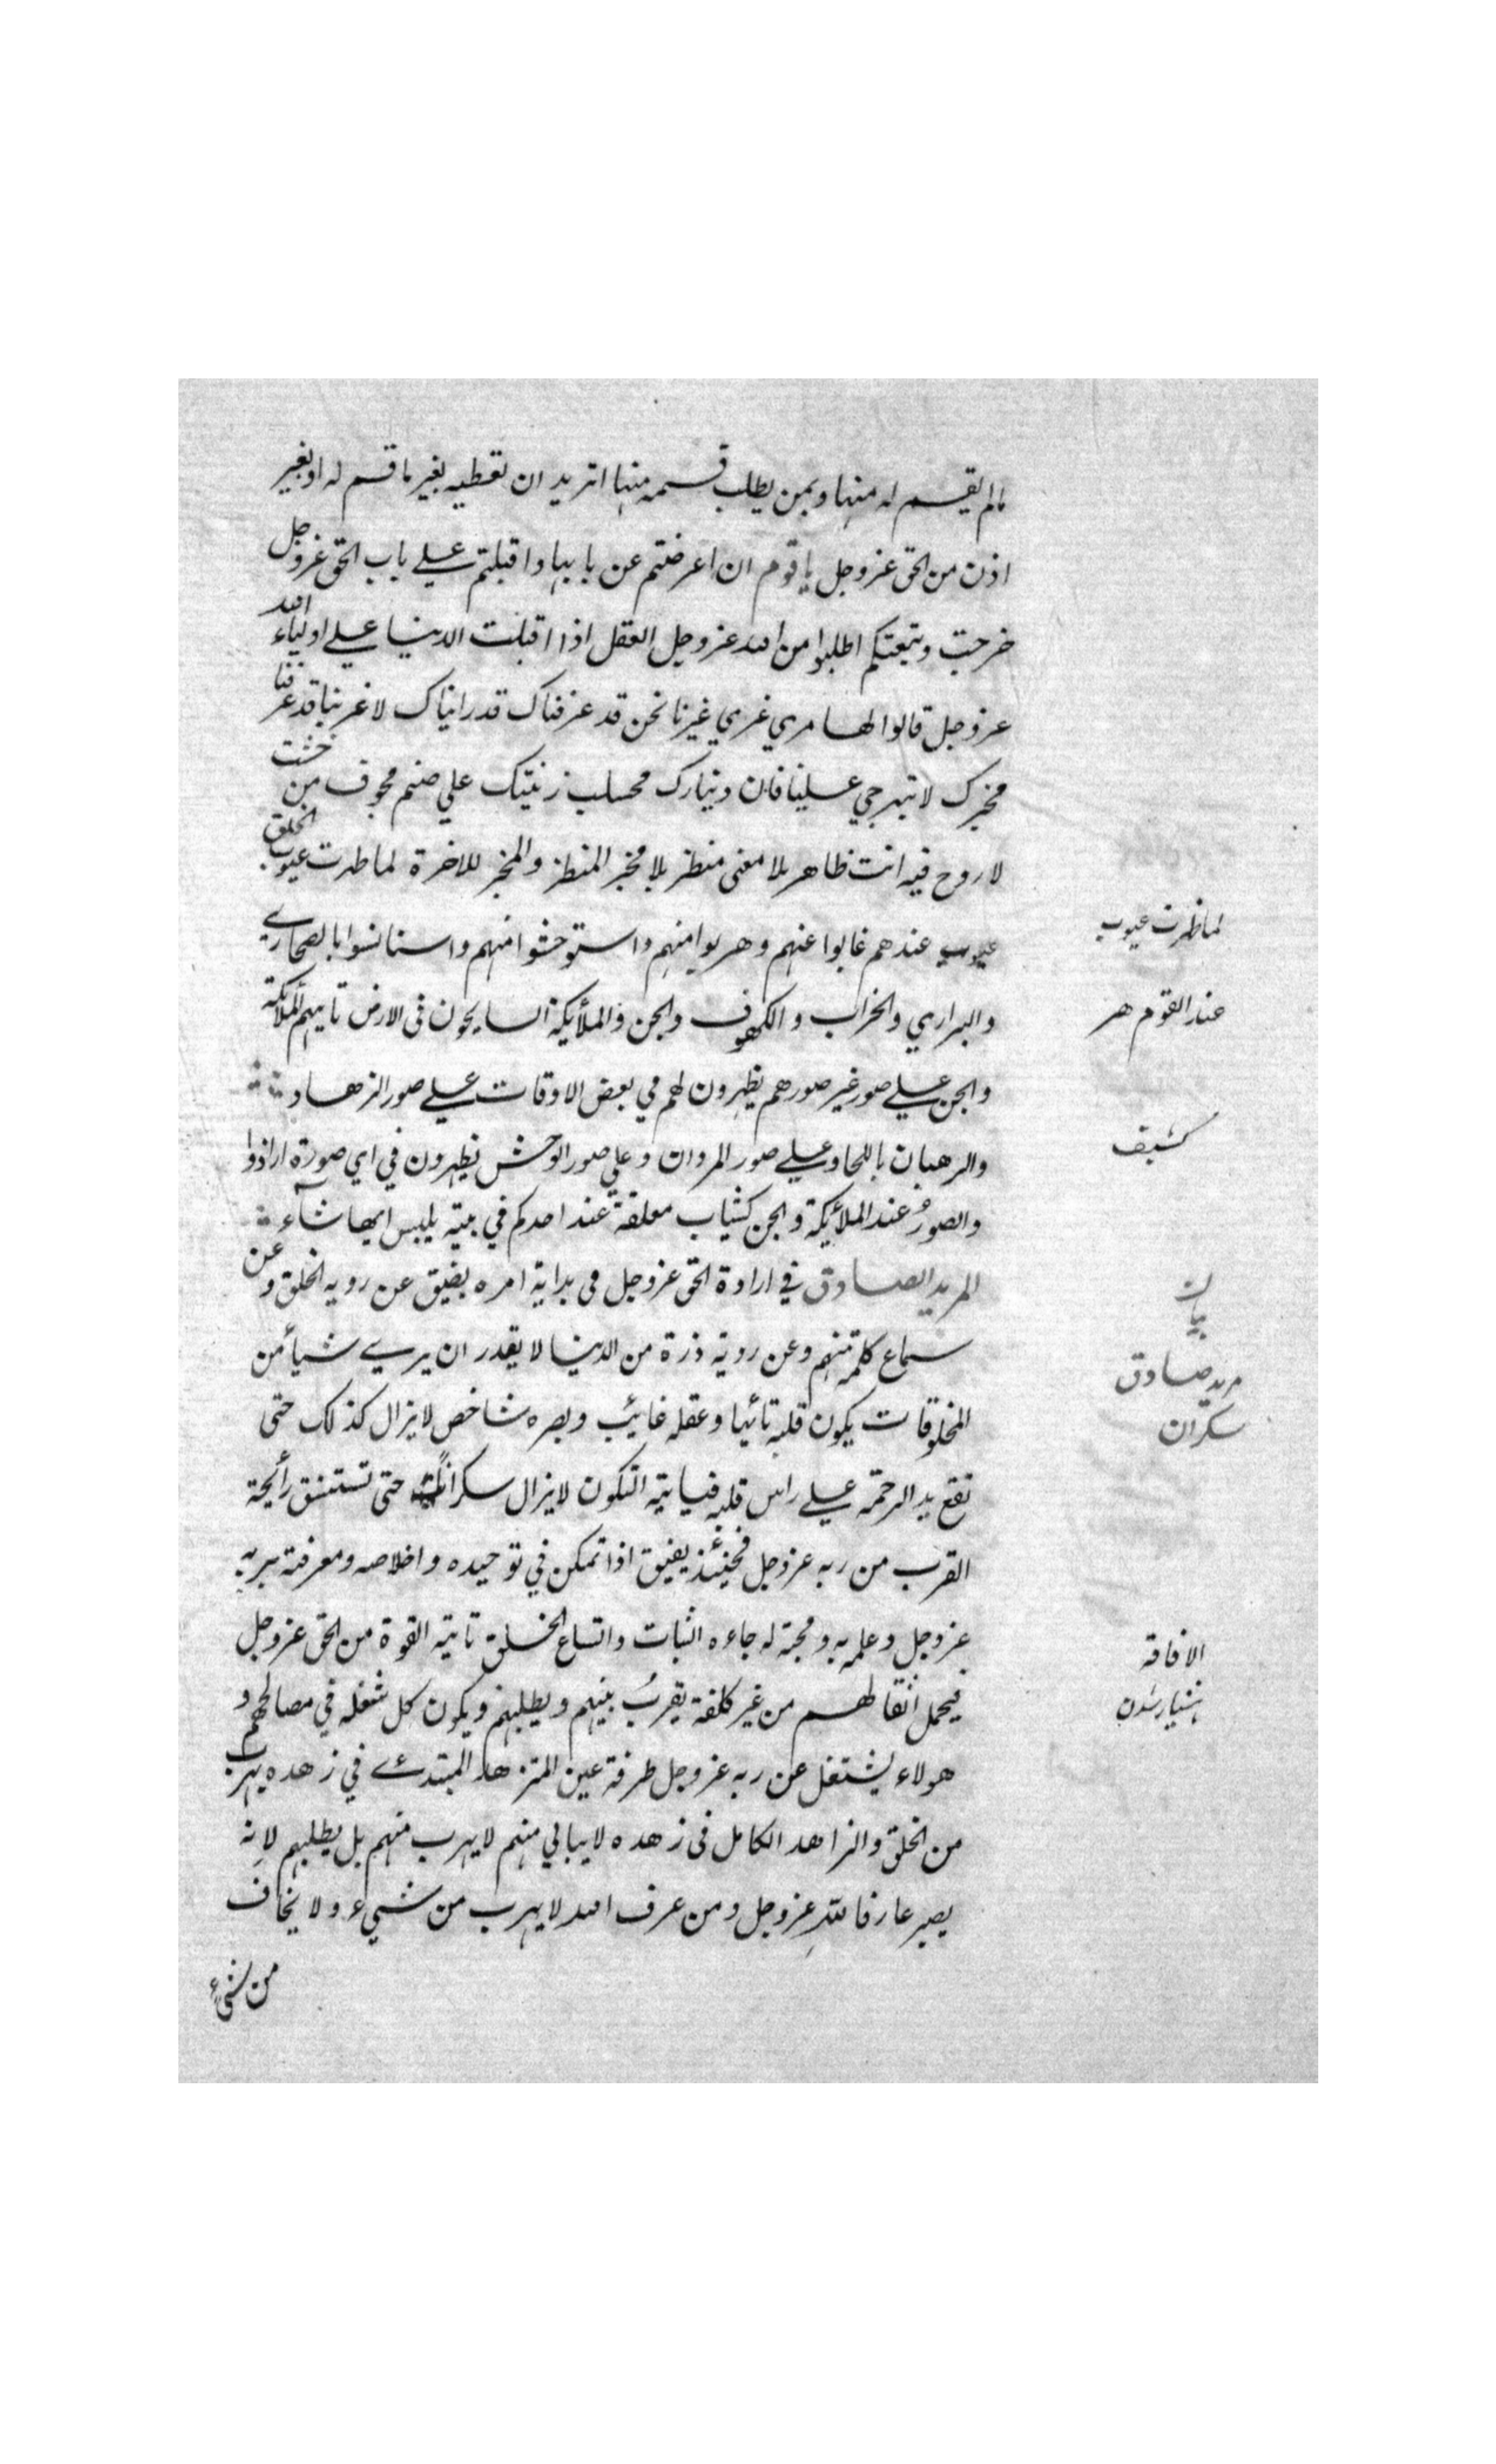 مالم يقسم له منها وبمن يطلب قسمه منها اتريد ان تعطيه بغير ما قسم له او بغير
اذن من الحق عزوجل يا قوم ان اعرضتم عن بابها واقبلتم على باب الحق عزوجل
خرجت وتبعتكم اطلبوا من الله عزوجل العقل اذا اقبلت الدنيا على اولياء الله
عزوجل قالوا لها مري غري غيرنا نحن قد عرفناك قد رايناك لا غرينا قد عرفنا
مخبرك لا تبهرجي علينا فان دينارك زينتك على صنم مجوف من خشت
لا روح فيه انت ظاهر بلا معنى منظر بلا مخبر المنظر والمخبر للاخرة لما ظهرت عيوب الخلق
عيوب عندهم غابوا عنهم وهربوا منهم واستوحشوا منهم واستانسوا بالصحاري
والبراري والخراب والكهوف والجن والملائكة السايحون فى الارض تاتيهم الملائكة
والجن على صور غير صورهم يظهرون لهم في بعض الاوقات على صور الزهاد
والرهبان باللحا وعلى صور المردان وعلى صور الوحش يظهرون في اي صورة ارادوا
والصور عند الملائكة والجن كثياب معلقة عند احدكم في بيته يلبس ايها شآء
المريد الصادق في ارادة الحق عزوجل فى بداية امره يضيق عن روية الخلق وعن
سماع كلمة منهم وعن روية ذرة من الدنيا لا يقدر ان يري شيأ من
المخلوقات يكون قلبه تائها وعقله غائب وبصره شاخص لا يزال كذلك حتى
تقع يد الرحمة على راس قلبه فياتيه السكون لا يزال سكرانا حتى تستنشق رائحة
القرب من ربه عزوجل فحينئذ يفيق اذا تمكن في توحيده واخلاصه ومعرفته بربه
عزوجل وعلمه به ومحبته له جاءه الثبات واتساع الخلق تاتيه القوة من الحق عزوجل
فيحمل اثقالهم من غير كلفة يقرب بينهم ويطلبهم ويكون كل شغله في مصالحهم و
هولاء يشتغل عن ربه عزوجل طرفة عين المتزهد المبتدئ في زهده يهرب
من الخلق والزاهد الكامل فى زهده لا يبالي منهم لا يهرب منهم بل يطلبهم لانه
يصير عارفا لله عزوجل ومن عرف الله لا يهرب من شيء ولا يخاف
من شيء
لما ظهرت عيوب
عند القوم هر
كشف
بيان
مريد صادق
سكران
الافاقة